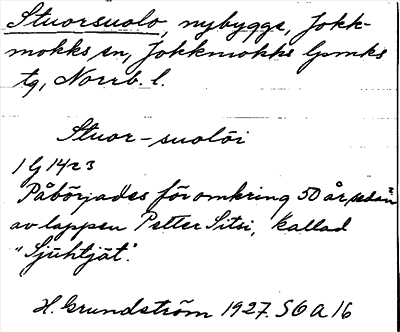 Stuorsuolo, nybygge, Jokk-
mokks sn, Jokkmokks lpmks
tg, Norrb. l.
Stuor-suolōi
1 lj 1423
Påbörjades för omkring 50 år sedan
av lappen Petter Sitsi, kallad
"Sjūhtjāt".
H. Grundström 1927. S 6 A 16